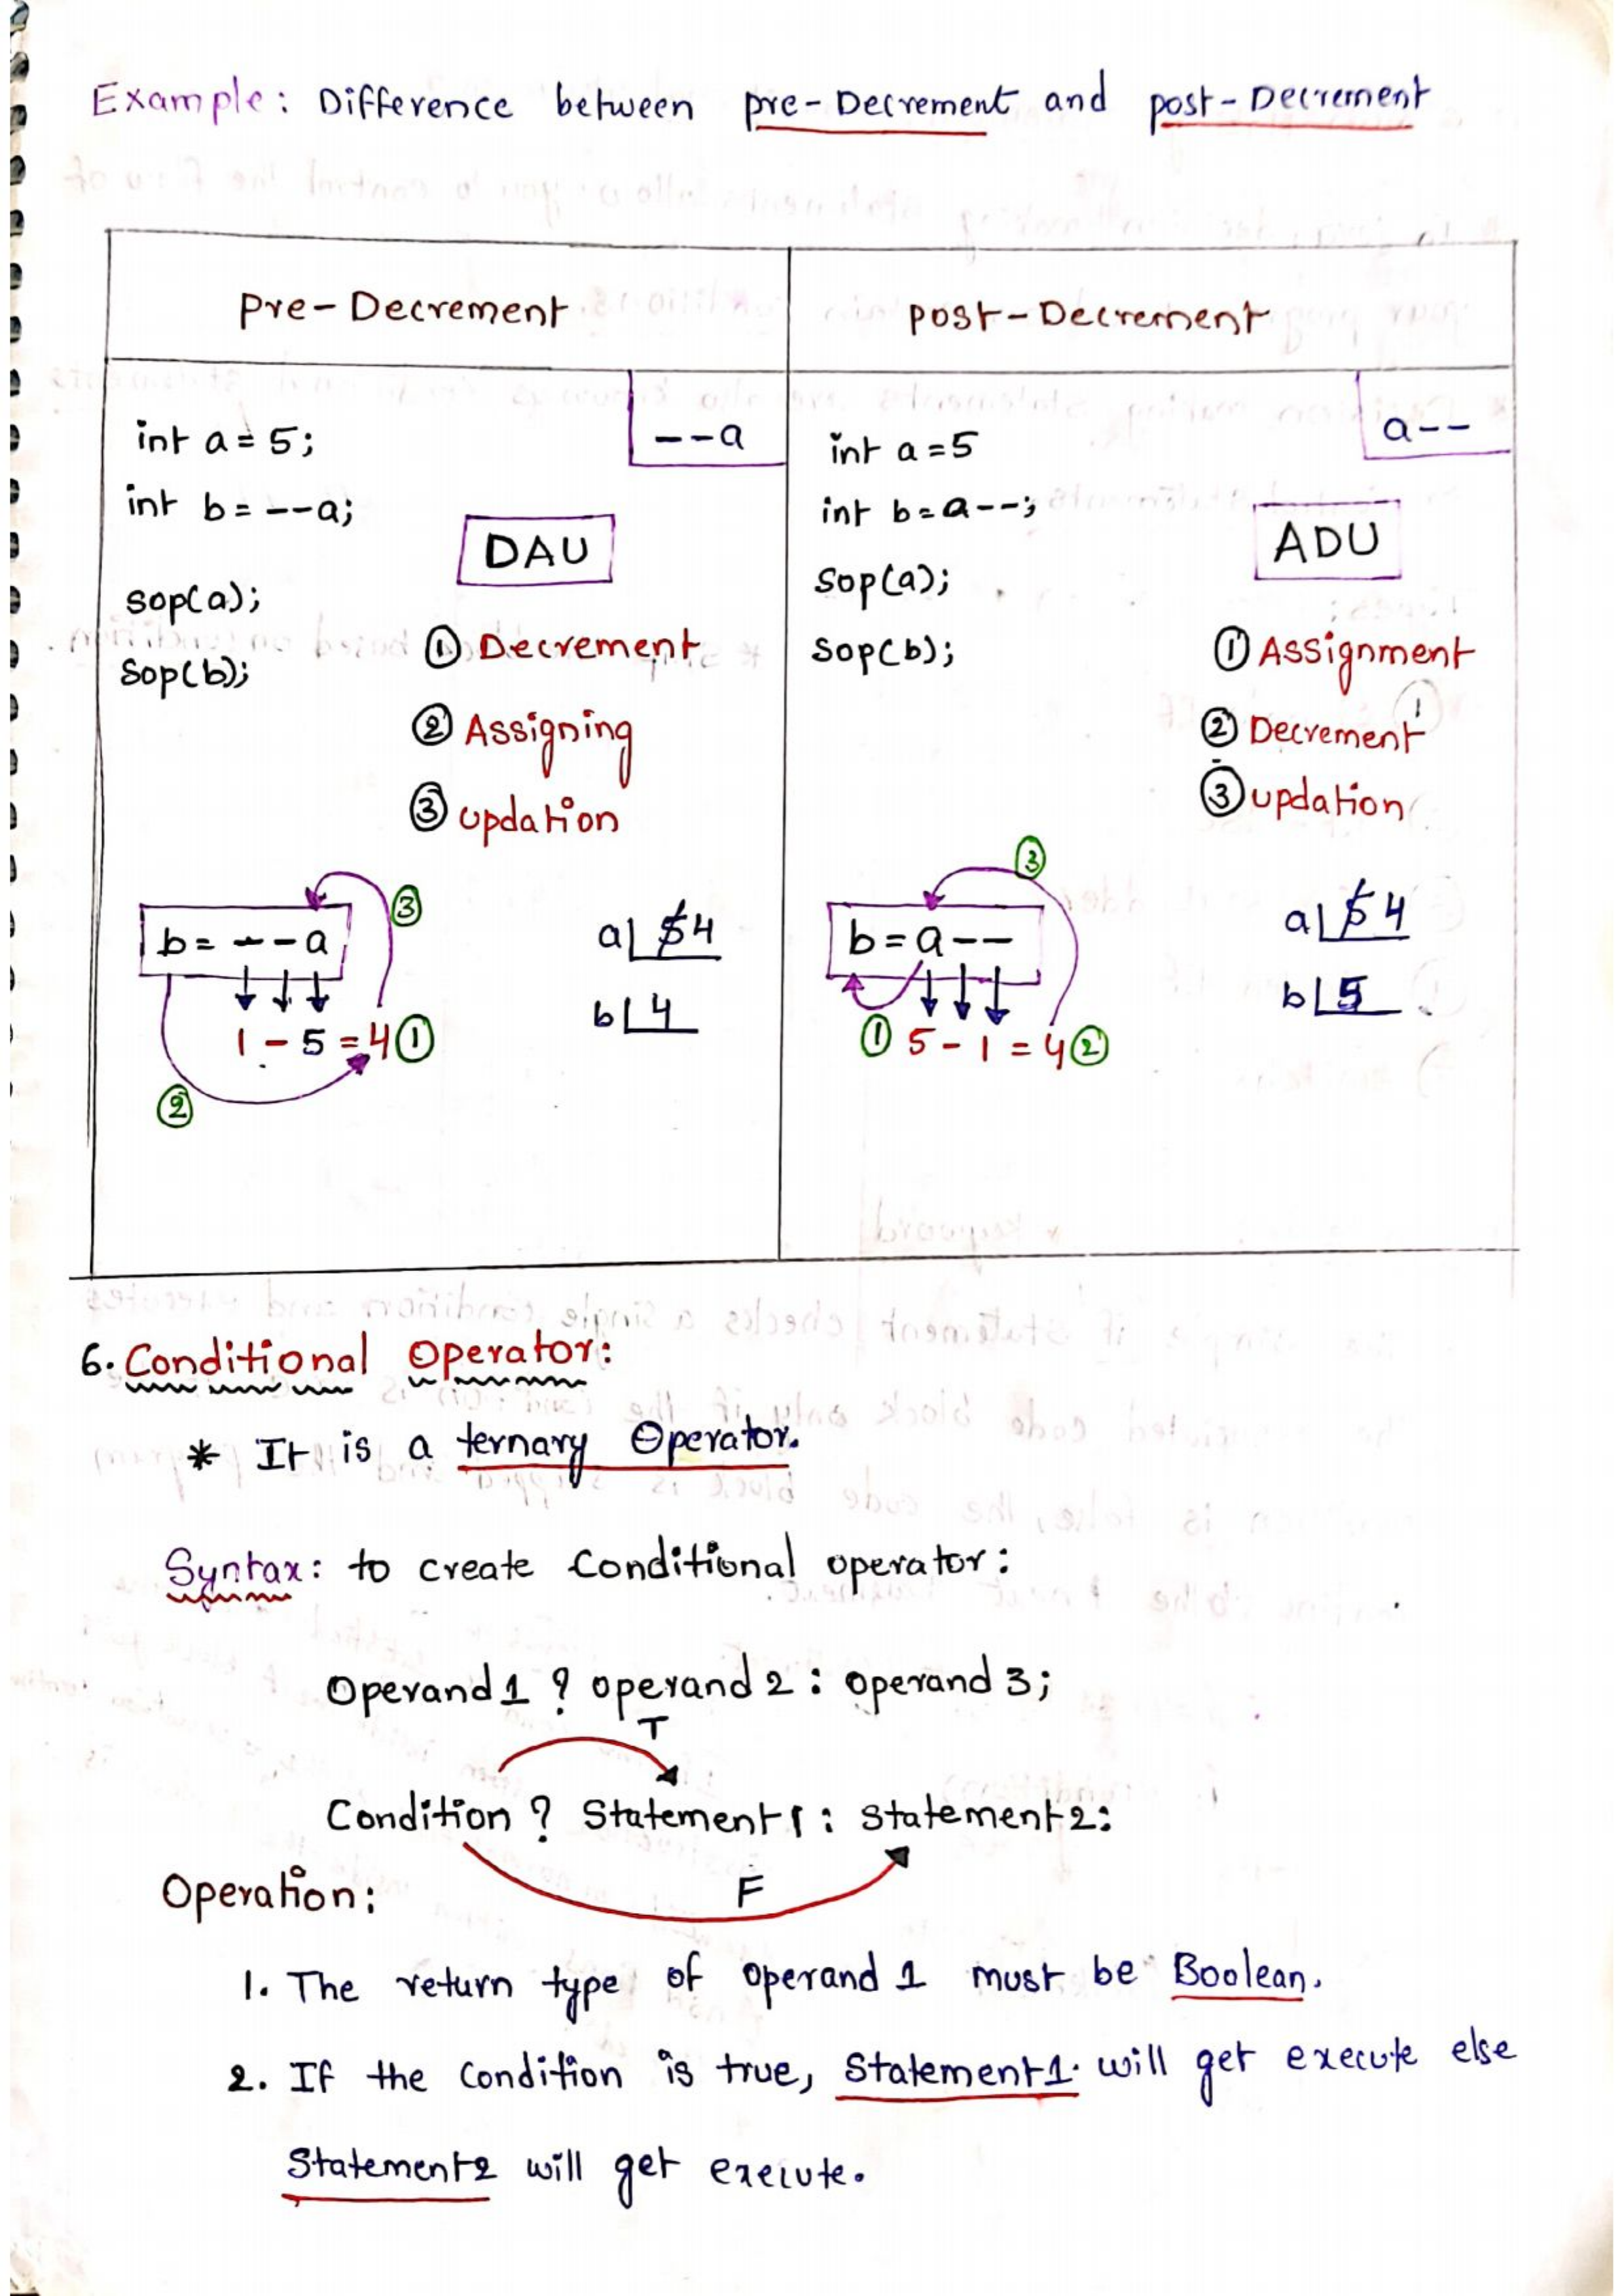 Example: Difference between pre-Decrement and post-Decrement
Pre-Decrement
--a
int a = 5;
int b = --a;
DAU
sop(a);
sop(b);
① Decrement
② Assigning
③ updation
③
b = --a
1 - 5 = 4 ①
②
a 5 4
b 4
post-Decrement
a--
int a = 5
int b = a--;
ADU
sop(a);
sop(b);
① Assignment
② Decrement
③ updation
③
b = a--
① 5 - 1 = 4 ②
a 5 4
b 5
6. Conditional Operator:
* It is a ternary Operator.
Syntax: to create Conditional operator:
Operand 1 ? operand 2 : operand 3;
T
Condition ? Statement1 : Statement2:
F
Operation:
1. The return type of operand 1 must be Boolean.
2. If the Condition is true, Statement1 will get execute else
Statement2 will get execute.